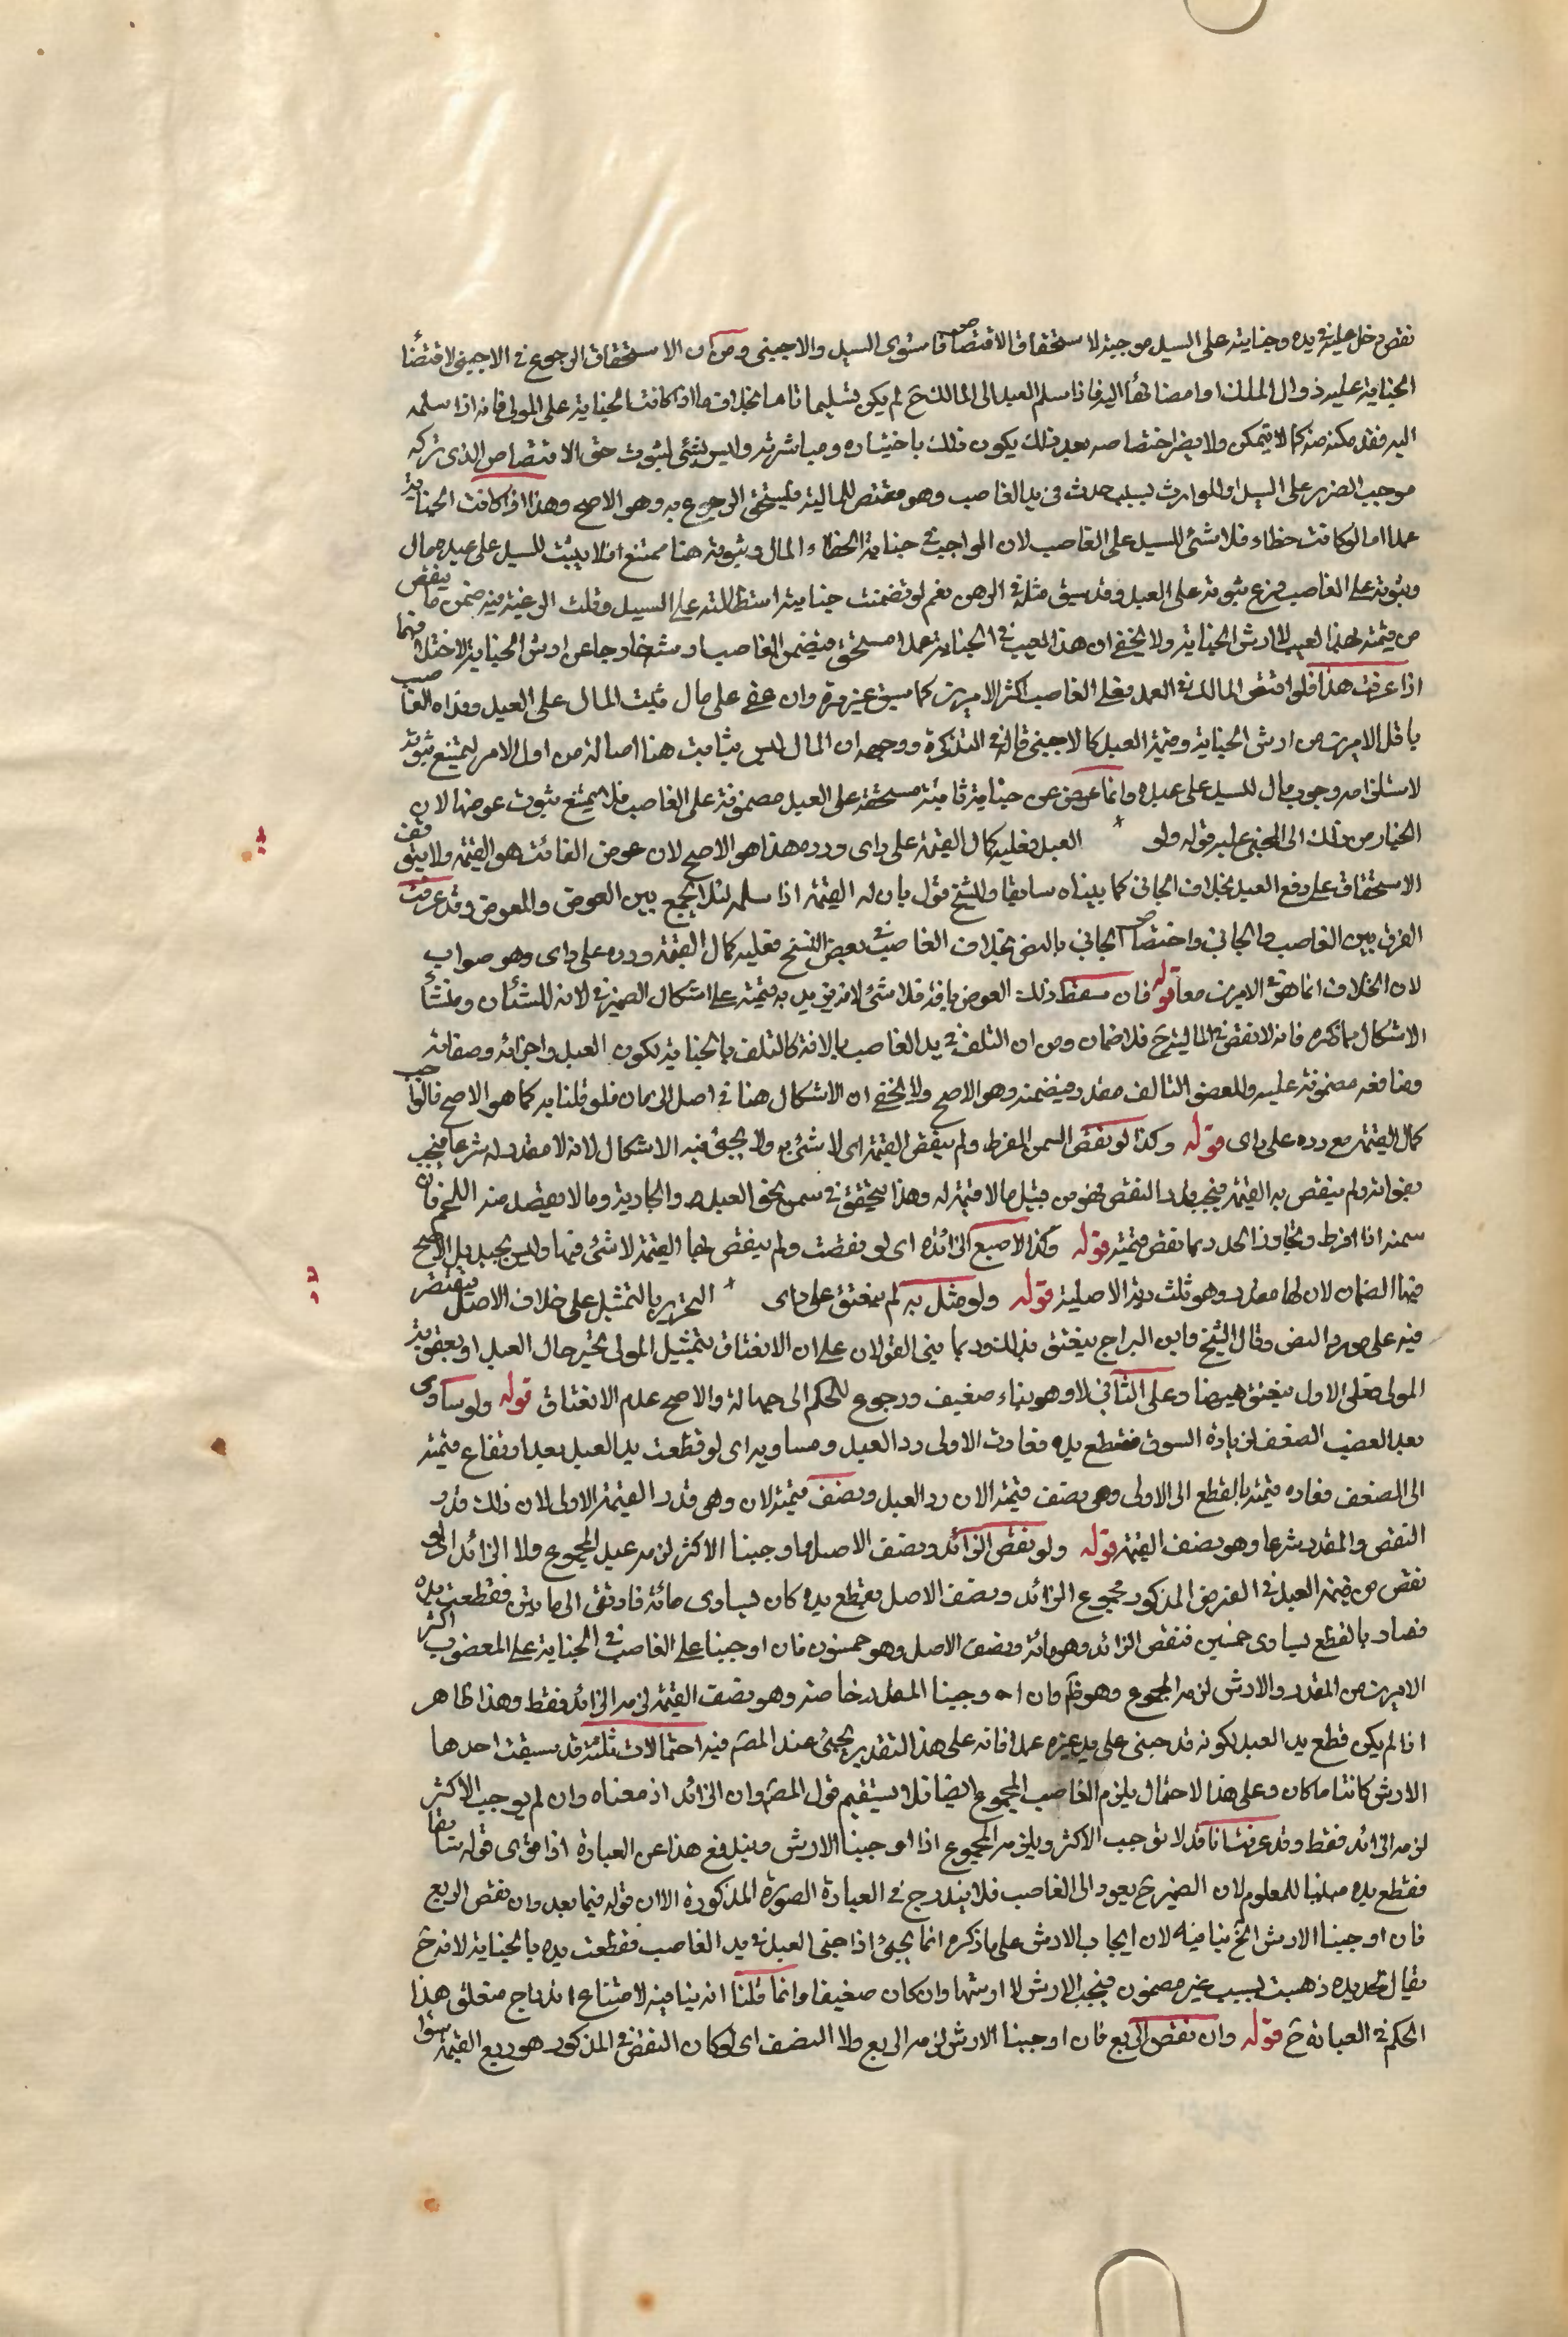 نقص دخل عليه في يده وجنايته على السيد موجبة لاستحقاق الاقتصاص فاستوى السيد والاجنبي ومن ان الاستحقاق الرجوع في الاجنبي لاقتضا
الجناية عليه زوال الملك او امضائها اليه فاذا سلم العبد الى المالك ح لم يكن تسليما تاما بخلاف ما اذا كانت الجناية على المولى فانه اذا سلمه
اليه فقد مكنه منه كما لا يتمكن ولا يضر اختصاصه بعد ذلك يكون ذلك باختياره ومباشرته وليس بشئ لثبوت حق الاقتصاص الذي تركه
موجب الضرر على السيد او للوارث بسبب حدث في يد الغاصب وهو مقتض للمالية فيستحق الرجوع به وهو الاصح وهذا اذا كانت الجناية
عمدا اما لو كانت خطاء فلا شئ للسيد على الغاصب لان الواجب في جناية الخطاء المال وثبوته هنا ممتنع اذ لا يثبت للسيد على عبده مال
وثبوته على الغاصب فرع ثبوته على العبد وقد سبق مثله في الرهن نعم لو تضمنت جنايته استطالته على السيد وقلت الرغبة فيه ضمن ما ينقص
من قيمته لهذا العيب لا ارش الجناية ولا يخفى ان هذا العيب في الجناية عمدا مستحق فيضمن الغاصب ارشه خارجا عن ارش الجناية لاختلافهما
اذا عرفت هذا فلو اقتص المالك في العمد فعلى الغاصب اكثر الامرين كما سبق غير مرة وان عفى على مال فيثبت المال على العبد وفداه الغاصب
باقل الامرين من ارش الجناية وقيمة العبد كالاجنبي قاله في التذكرة ووجهه ان المال ليس بثابت هنا اصالة من اول الامر ليمتنع ثبوته
لاستلزامه وجوب مال للسيد على عبده وانما عوض عن جناية ثابتة مستحقة على العبد مضمونة على الغاصب فلا يمتنع ثبوت عوضها لان
الخيار من ذلك الى المجني عليه قوله ولو * العبد فعليه كمال القيمة على راى ورده هذا هو الاصح لان عوض الفائت هو القيمة ولا يتوقف
الاستحقاق على دفع العبد بخلاف الجاني كما بيناه سابقا وللشيخ قول بان له القيمة اذا سلمه لئلا يجمع بين العوض والمعوض وقد عرفت
الفرق بين الغاصب والجاني واختصاص الجاني بالنص بخلاف الغاصب في بعض النسخ فعليه كمال القيمة ورده على راى وهو صواب
لان الخلاف انما هو في الامرين معا قوله فان سقط ذلك العوض بافة فلا شئ لانه يزيد به قيمته على اشكال الضمير في لانه للشان ومنشأ
الاشكال مما ذكره فانه لا نقص في المالية ح فلا ضمان ومن ان التلف في يد الغاصب بالافة كالتلف بالجناية لكون العبد واجزائه وصفاته
ومنافعه مضمونة عليه وللعضو التالف مقدر فيضمنه وهو الاصح ولا يخفى ان الاشكال هنا في اصل الضمان فلو قلنا به كما هو الاصح فالواجب
كمال القيمة مع رده على راى قوله وكذا لو نقص السمن المفرط ولم ينقص القيمة اى لا شئ به ولا يجئ فيه الاشكال لانه لا مقدر له شرعا فيجب
بفواته ولم ينقص به القيمة فيجب قدر النقص فهو من قبيل ما لا قيمة له وهذا يتحقق في سمن نحو العبد والجارية وما لا يقصد منه اللحم فان
سمنه اذا افرط وتجاوز الحد ربما نقص قيمته قوله وكذا الاصبع الزائدة اى لو نقصت ولم ينقص بها القيمة لا شئ فيها وليس بجيد بل الاصح
فيها الضمان لان لها مقدرا وهو ثلث دية الاصلية قوله ولو مثل به لم ينعتق على راى * التحرير بالتمثيل على خلاف الاصل فيقتصر
فيه على مورد النص وقال الشيخ وابن البراج ينعتق بذلك وربما بنى القولان على ان الانعتاق بتمثيل المولى بخبر حال العبد او بعقوبة
المولى فعلى الاول ينعتق هيهنا وعلى الثاني لا وهو بناء ضعيف ورجوع للحكم الى جهالة والاصح عدم الانعتاق قوله ولو ساوى
بعد الغصب الضعف لزيادة السوق فقطع يده فعادت الاولى رد العبد ومساويه اى لو قطعت يد العبد بعد ارتفاع قيمته
الى الضعف فعاده قيمته بالقطع الى الاولى وهى نصف قيمته الان رد العبد ونصف قيمته لان وهى قدر القيمة الاولى لان ذلك قدر
النقص والمقدر شرعا وهو نصف القيمة قوله ولو نقص الزائد ونصف الاصل واوجبنا الاكثر لزمه عبد المجموع ولا الزائد اى لو
نقص من قيمة العبد في الفرض المذكور مجموع الزائد ونصف الاصل بقطع يده كان يساوى مائة فارتقى الى مايتين فقطعت يده
فصار بالقطع يساوى خمسين فنقص الزائد وهو مائة ونصف الاصل وهو خمسون فان اوجبنا على الغاصب في الجناية على المغصوب اكثر
الامرين من المقدر والارش لزمه المجموع وهو ظ وان اوجبنا المقدر خاصة وهو نصف القيمة لزمه الزائد فقط وهذا ظاهر
اذا لم يكن قطع يد العبد لكونه قد جنى على يد غيره عمدا فانه على هذا التقدير يجئ عند المص فيه احتمالات ثلثة قد سبقت احدها
الارش كائنا ما كان وعلى هذا الاحتمال يلزم الغاصب المجموع ايضا فلا يستقيم قول المص وان الزائد اذ معناه وان لم يوجب الاكثر
لزمه الزائد فقط وقد عرفت انا قد لا نوجب الاكثر ويلزمه المجموع اذا اوجبنا الارش ويندفع هذا عن العبارة اذا قرئ قوله سابقا
فقطع يده مبنيا للمعلوم لان الضمير ح يعود الى الغاصب فلا يندرج في العبارة الصورة المذكورة الا ان قوله فيما بعد وان نقص الربع
فان اوجبنا الارش الخ ينافيه لان ايجاب الارش على ما ذكره انما يجئ اذا جنى العبد في يد الغاصب فقطعت يده بالجناية لانه ح
يقال يده ذهبت بسبب غير مضمون فيجب الارش لا ارشها وان كان ضعيفا وانما قلنا انه ينافيه لامتناع اندراج متعلق هذا
الحكم في العبارة ح قوله وان نقص الربع فان اوجبنا الارش لزمه الربع ولا النصف اى لو كان النقص في المذكور هو ربع القيمة